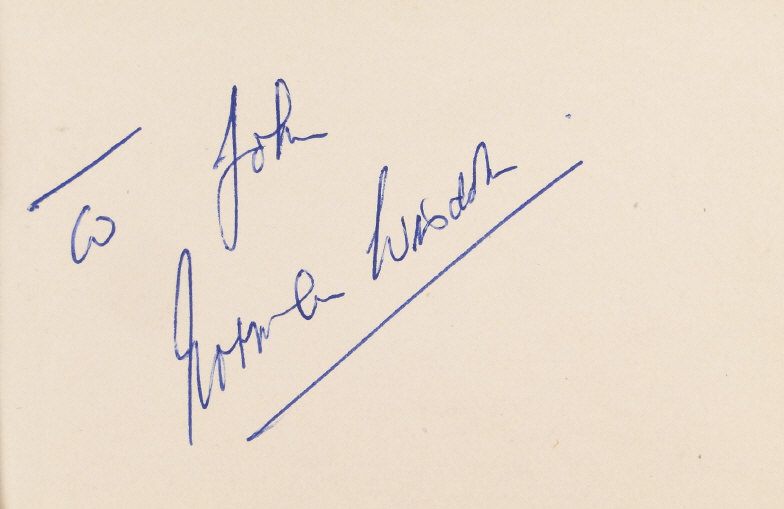 To John
Norman Wisdom